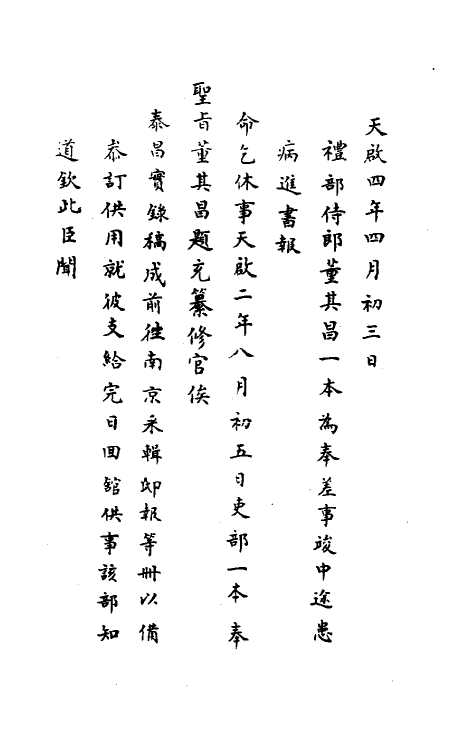 天啟四年四月初三日
禮部侍郎董其昌一本為奉差事竣中途患
病進書報
命乞休事天啟二年八月初五日吏部一本奉
聖旨董其昌題充纂修官俟
泰昌實錄稿成前往南京采輯邸報等冊以備
叅訂供用就彼支給完日回館供事該部知
道欽此臣聞